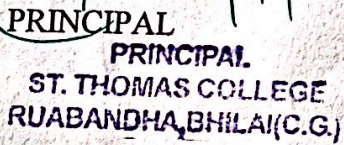 PRINCIPAL
PRINCIPAL
ST. THOMAS COLLEGE
RUABANDHA,BHILAI(C.G.)